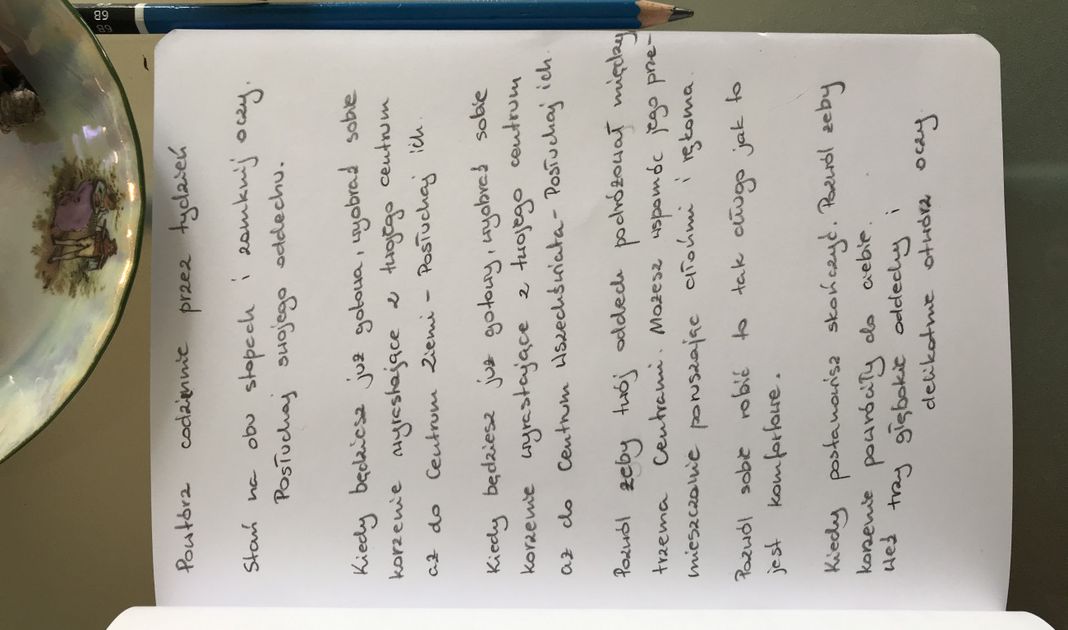 6B
Powtórz codziennie przez tydzień
Stań na obu stopach i zamknij oczy.
Posłuchaj swojego oddechu.
Kiedy będziesz już gotowa, wyobraź sobie
korzenie wyrastające z twojego centrum
aż do Centrum Ziemi - Posłuchaj ich.
Kiedy będziesz już gotowy, wyobraź sobie
korzenie wyrastające z twojego centrum
aż do Centrum Wszechświata - Posłuchaj ich.
Pozwól żeby twój oddech podróżował między
trzema Centrami. Możesz wspomóc jego prze-
mieszczanie poruszając dłońmi i rękoma.
Pozwól sobie robić to tak długo jak to
jest komfortowe.
Kiedy postanowisz skończyć. Pozwól żeby
korzenie powróciły do ciebie.
Weź trzy głębokie oddechy i
delikatnie otwórz oczy